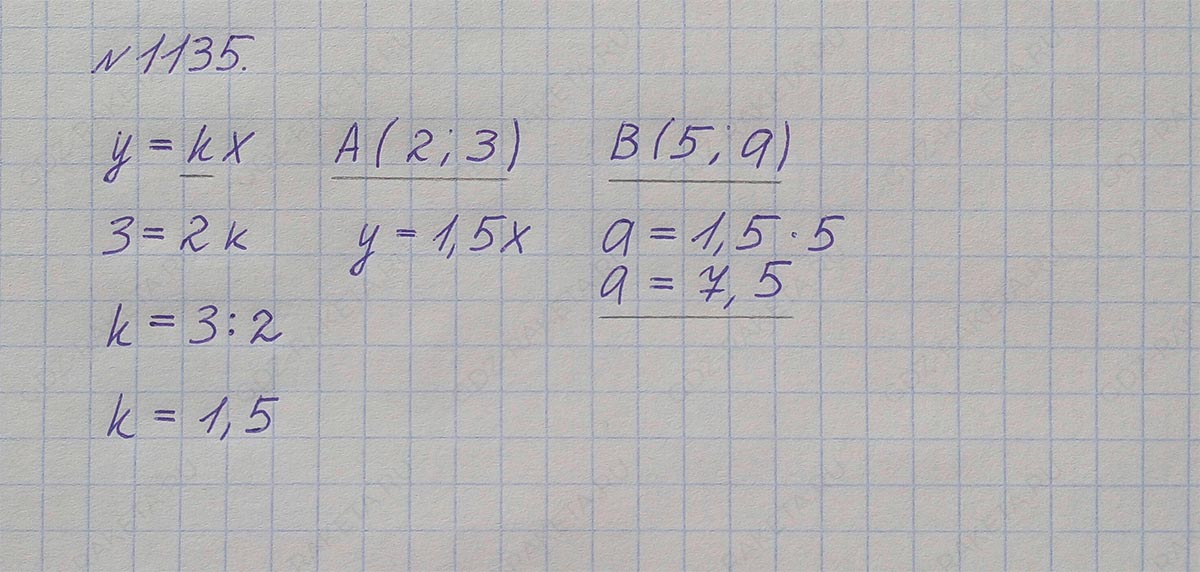 №1135.
y = kx A(2; 3) B(5; a)
3 = 2k y = 1,5x a = 1,5 · 5
a = 7,5
k = 3:2
k = 1,5
GDZ-RAKETA.RU